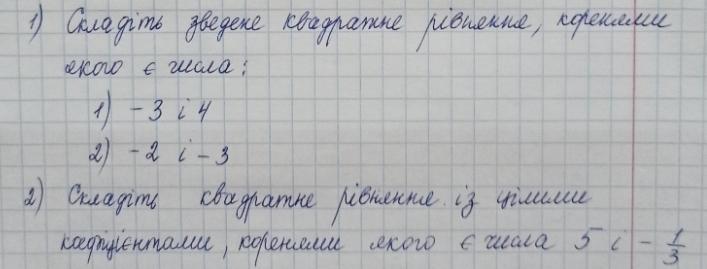 1) Складіть зведене квадратне рівняння, коренями
якого є числа:
1) -3 і 4
2) -2 і -3
2) Складіть квадратне рівняння із цілими
коефіцієнтами, коренями якого є числа 5 і -1/3